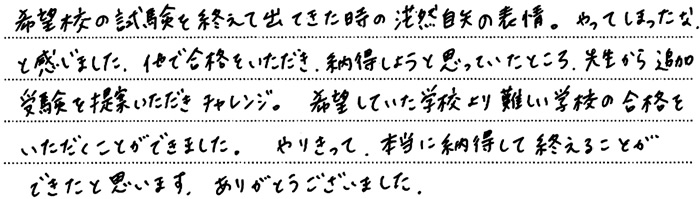 希望校の試験を終えて出てきた時の茫然自失の表情。やってしまったな、
と感じました。他で合格をいただき、納得しようと思っていたところ、先生から追加
受験を提案いただきチャレンジ。希望していた学校より難しい学校の合格を
いただくことができました。やりきって、本当に納得して終えることが
できたと思います。ありがとうございました。